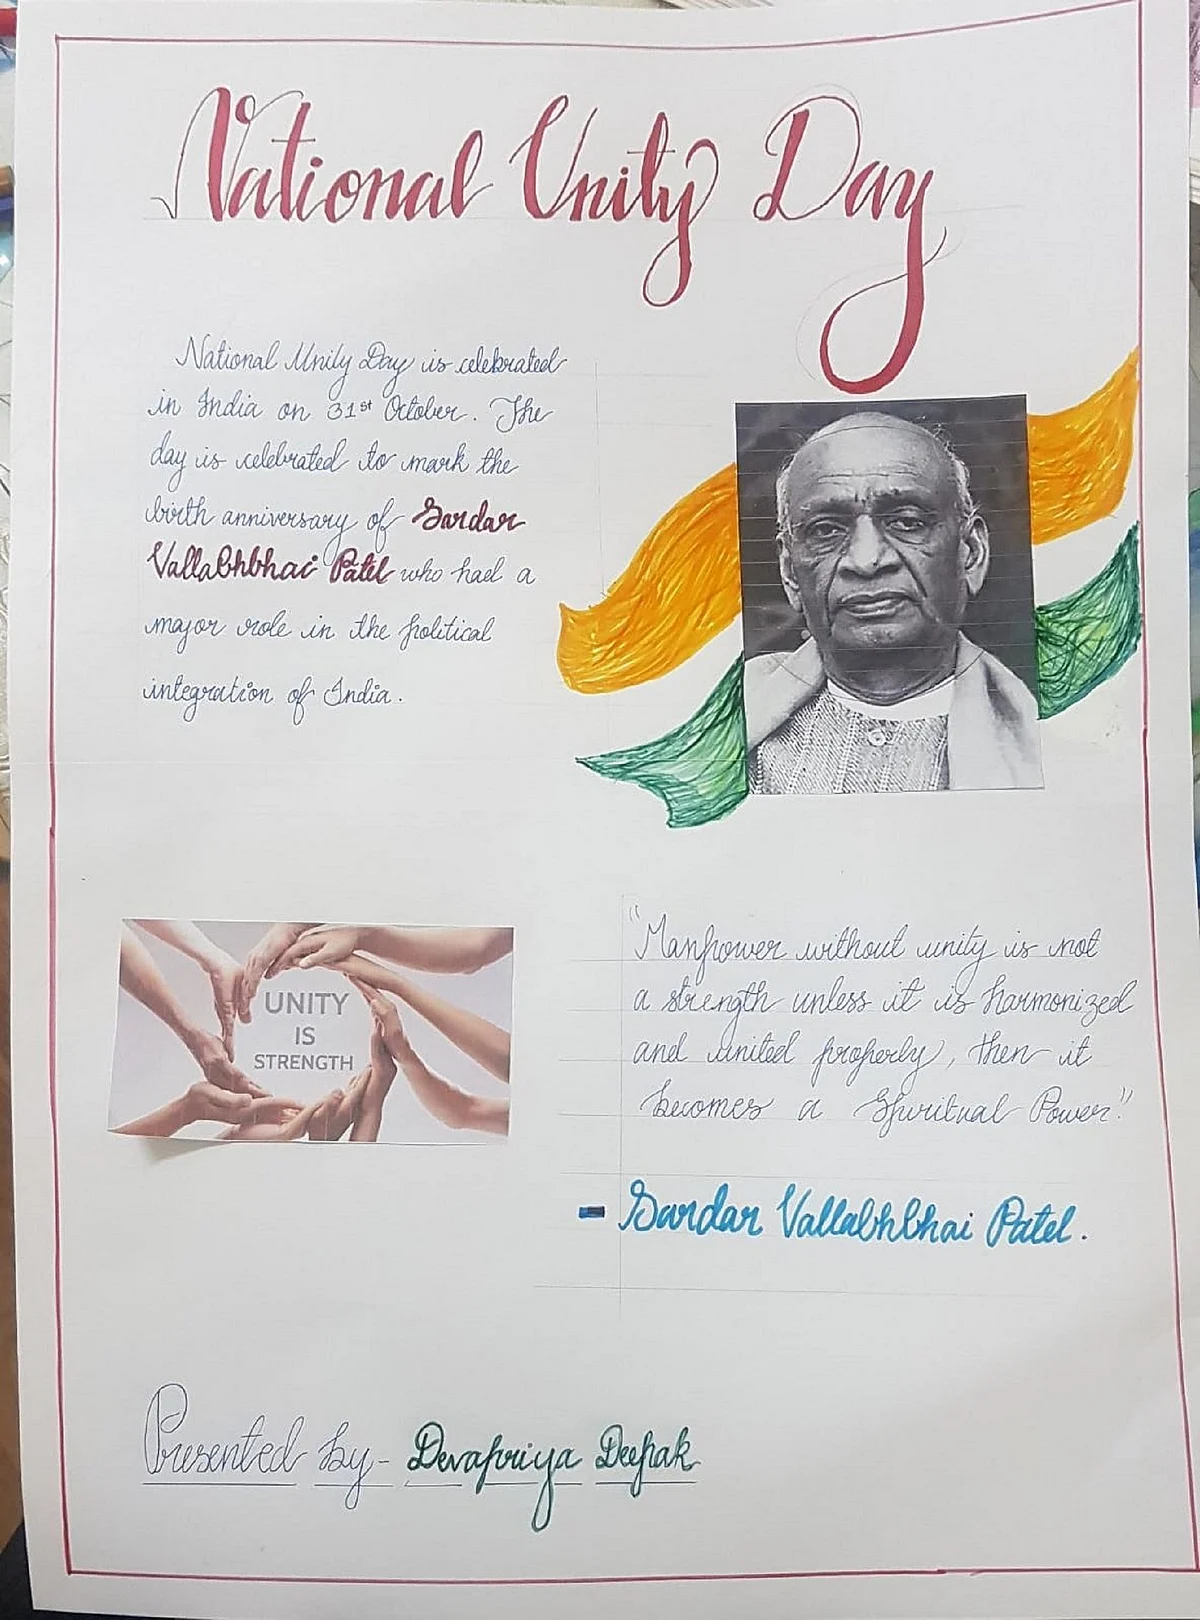 National Unity Day
National Unity Day is celebrated
in India on 31st October. The
day is celebrated to mark the
birth anniversary of Sardar
Vallabhbhai Patel who had a
major role in the political
integration of India.
UNITY
IS
STRENGTH
"Manpower without unity is not
a strength unless it is harmonized
and united properly, then it
becomes a Spiritual Power."
- Sardar Vallabhbhai Patel.
Presented by - Devapriya Deepak